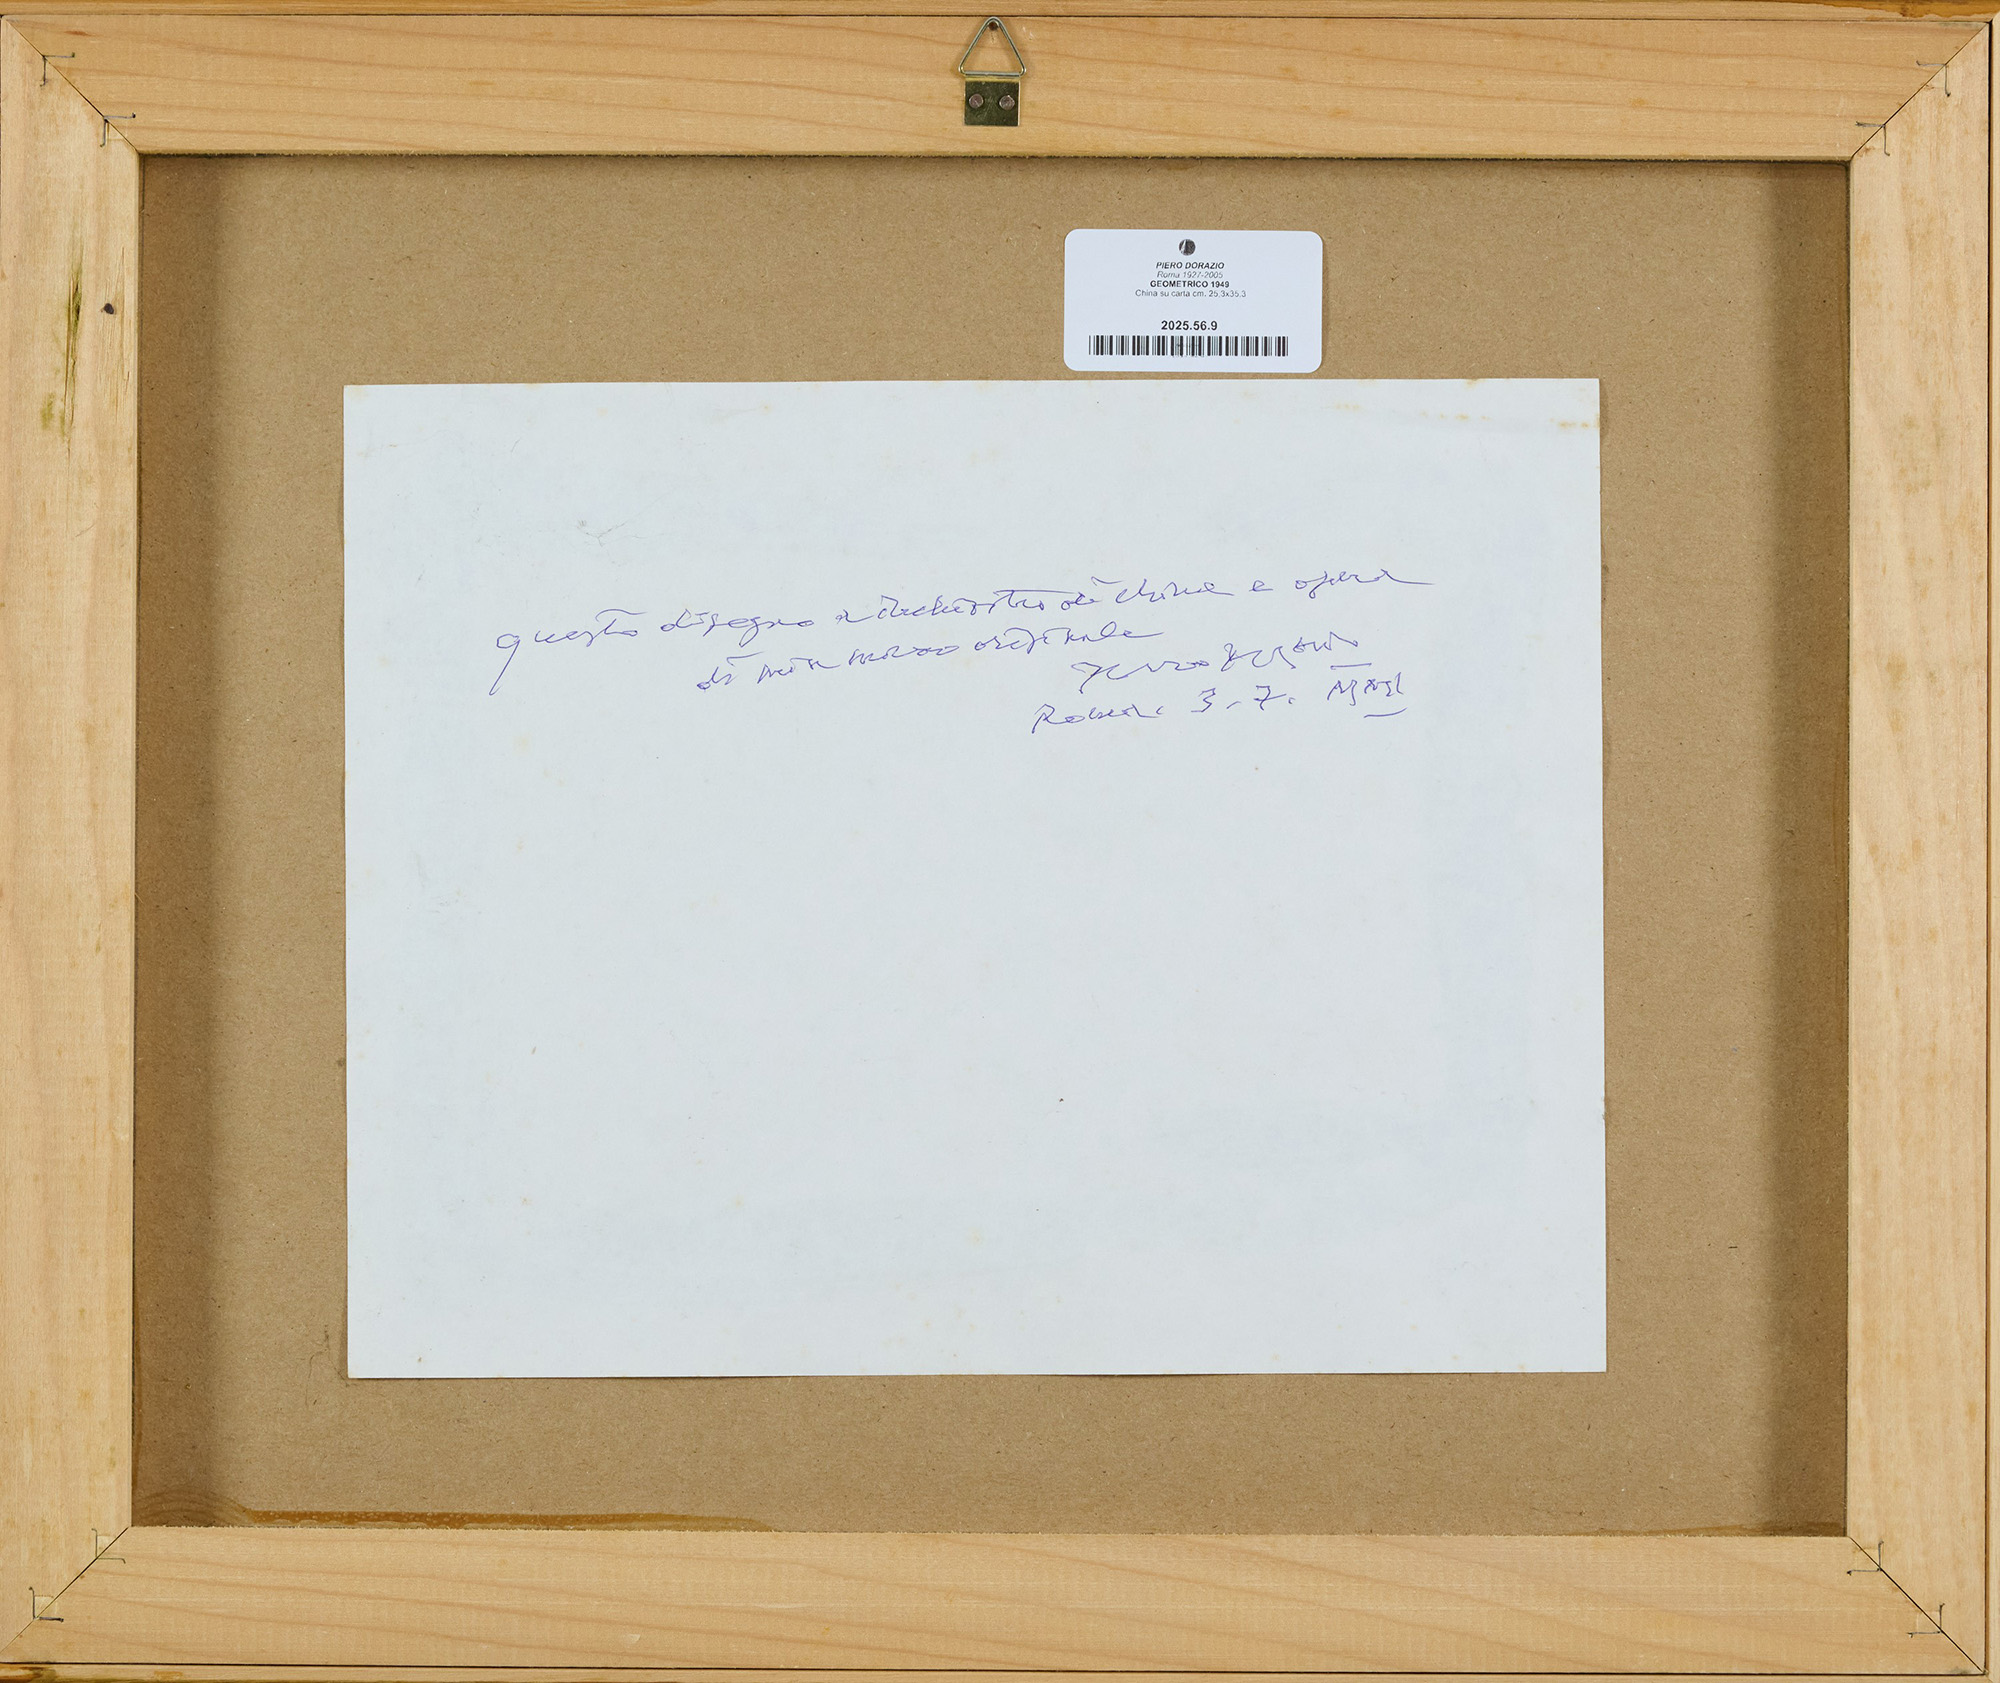 PIERO DORAZIO
Roma 1927-2005
GEOMETRICO 1949
China su carta cm. 25,3x35,3
2025.56.9
questo disegno a inchiostro di china e opera
di mia mano originale
Roma. 3.7.